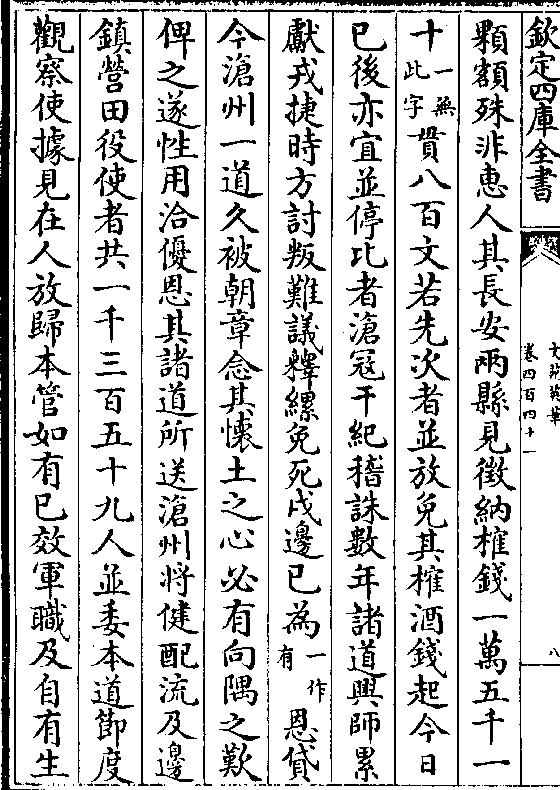 欽定四庫全書
文苑英華
卷四百四十一
八
顆額殊非惠人其長安兩縣見徵納榷錢一萬五千一
十一無此字貫八百文若先次者並放免其榷酒錢起今日
已後亦宜並停比者滄冦干紀稽誅數年諸道興師累
獻戎捷時方討叛難議釋縲免死戍邊已為一作有恩貸
今滄州一道久被朝章念其懷土之心必有向隅之歎
俾之遂性用洽優恩其諸道所送滄州將健配流及邊
鎮營田役使者共一千三百五十九人並委本道節度
觀察使據見在人放歸本管如有已效軍職及自有生